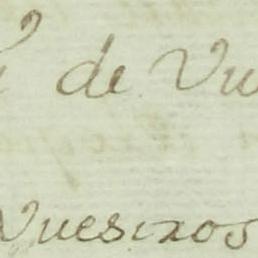 de Vu
Vuesixos